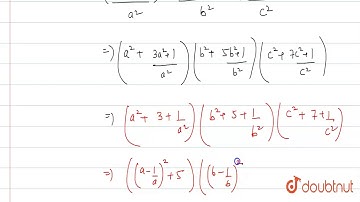 a² b² c²
=) (a² + 3a²+1/a²) (b² + 5b²+1/b²) (c² + 7c²+1/c²)
=) (a² + 3 + 1/a²) (b² + 5 + 1/b²) (c² + 7 + 1/c²)
=) ((a - 1/a)² + 5) ((b - 1/b)²
doubtnut